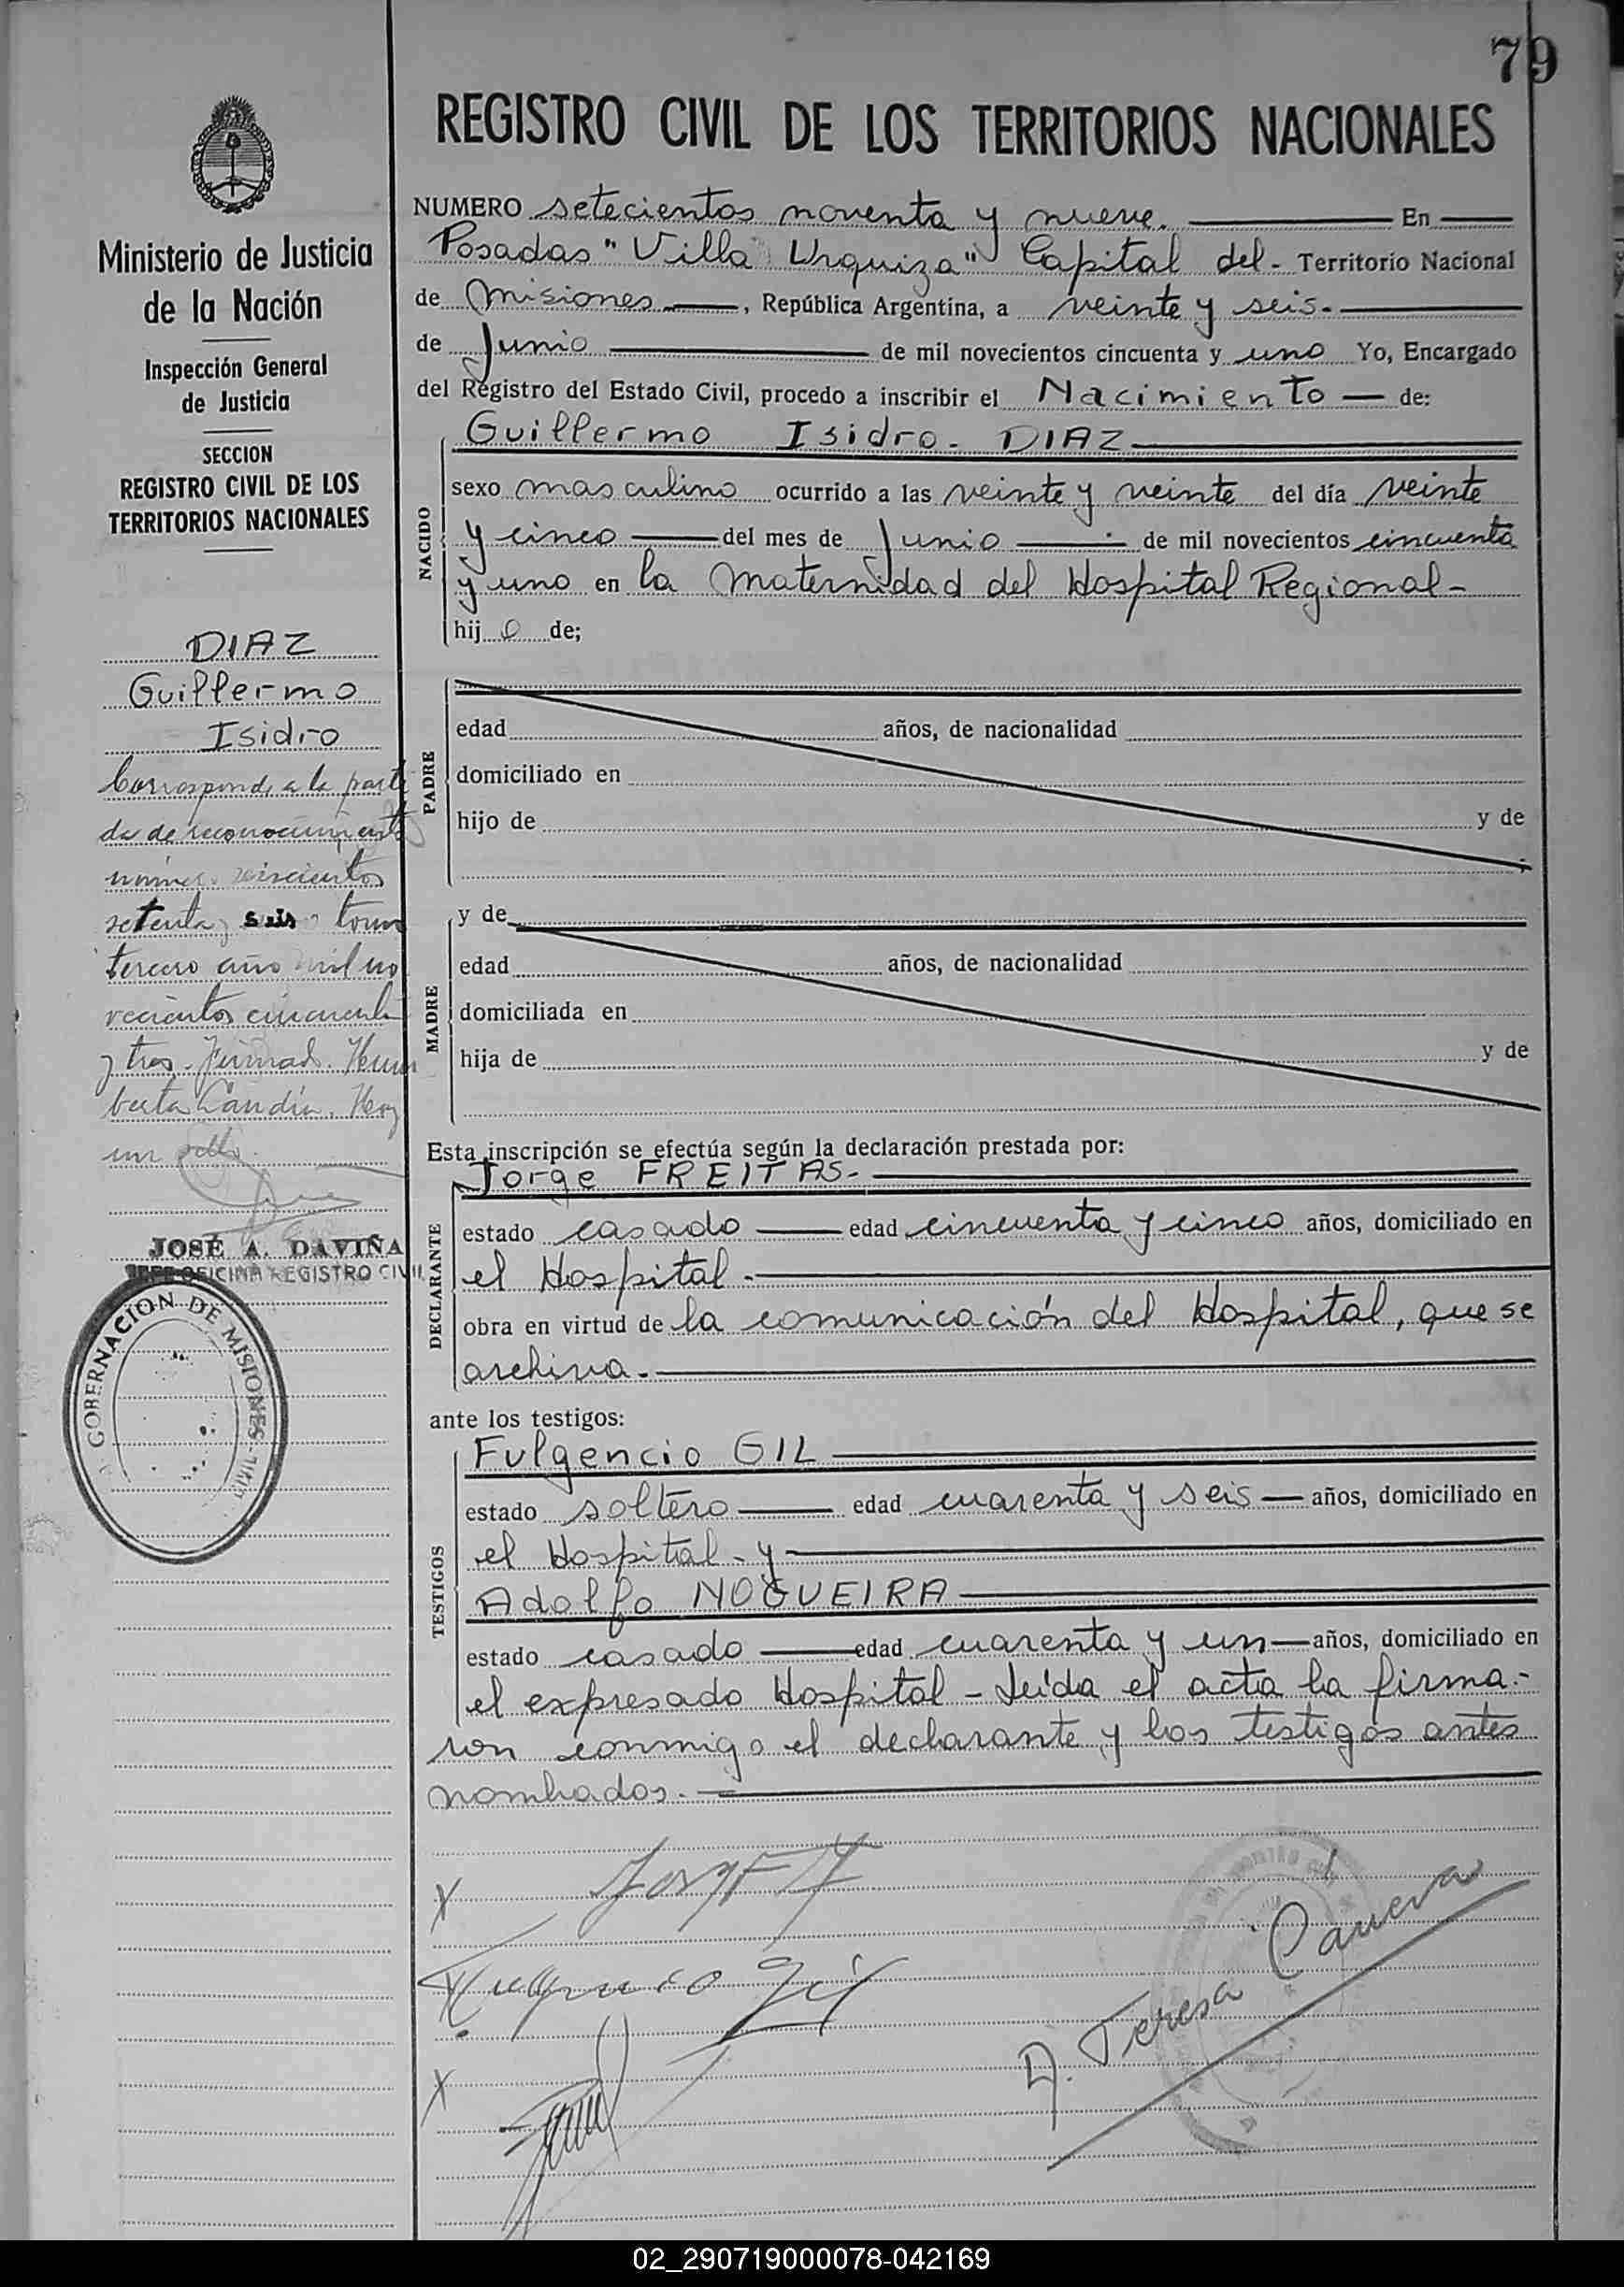 79
REGISTRO CIVIL DE LOS TERRITORIOS NACIONALES
Ministerio de Justicia
de la Nación
Inspección General
de Justicia
SECCION
REGISTRO CIVIL DE LOS
TERRITORIOS NACIONALES
DIAZ
Guillermo
Isidro
Corresponde a la parti
da de reconocimiento
número seiscientos
setenta y seis tomo
tercero año mil no
vecientos cincuenta
y tres. Firmado. Hum
berta Candia. Hay
un sello.
JOSÉ A. DAVIÑA
JEFE OFICINA REGISTRO CIVIL
GOBERNACION DE MISIONES
NUMERO setecientos noventa y nueve. En
Posadas "Villa Urquiza" Capital del - Territorio Nacional
de Misiones, República Argentina, a veinte y seis.
de Junio de mil novecientos cincuenta y uno Yo, Encargado
del Registro del Estado Civil, procedo a inscribir el Nacimiento de:
Guillermo Isidro - DIAZ
NACIDO
sexo masculino ocurrido a las veinte y veinte del día veinte
y cinco del mes de Junio de mil novecientos cincuenta
y uno en la Maternidad del Hospital Regional -
hij o de;
PADRE
edad años, de nacionalidad
domiciliado en
hijo de y de
MADRE
y de
edad años, de nacionalidad
domiciliada en
hija de y de
Esta inscripción se efectúa según la declaración prestada por:
DECLARANTE
Jorge FREITAS-
estado casado edad cincuenta y cinco años, domiciliado en
el Hospital.
obra en virtud de la comunicación del Hospital, que se
archiva.
ante los testigos:
TESTIGOS
Fulgencio GIL
estado soltero edad cuarenta y seis años, domiciliado en
el Hospital - y
Adolfo NOGUEIRA
estado casado edad cuarenta y un años, domiciliado en
el expresado Hospital - Leída el acta la firma-
ron conmigo el declarante y los testigos antes
nombrados.
X
Fulgencio Gil
X
A. Teresa Canera
02_290719000078-042169